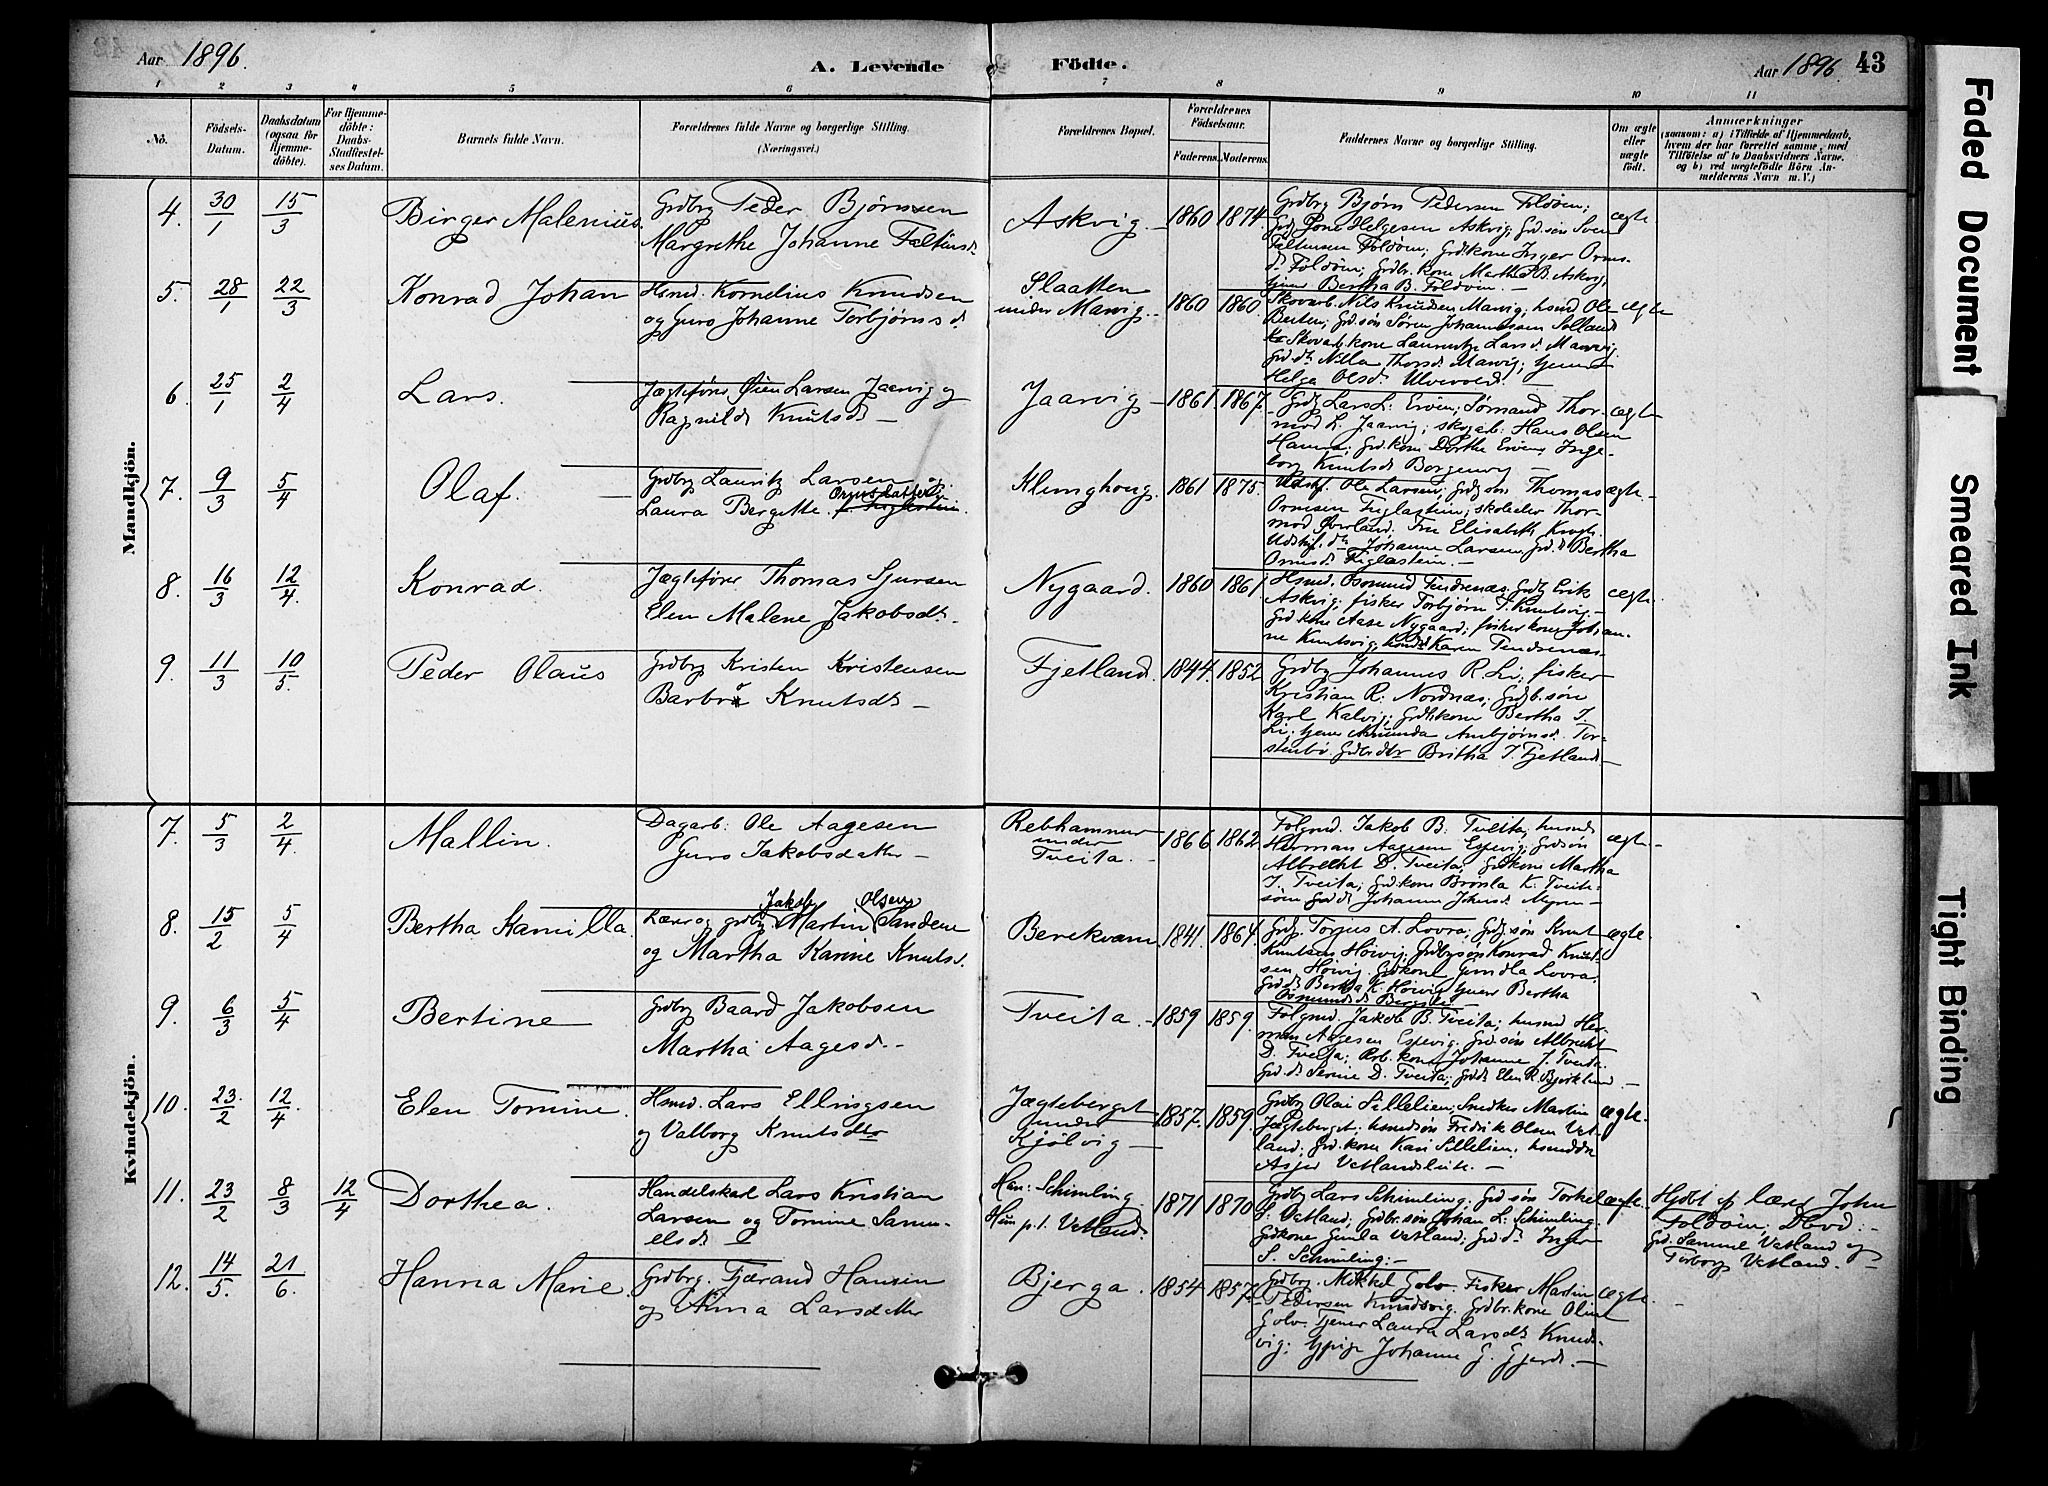 Aar 1896.
A. Levende
Födte.
Aar 1896. 43
1 2 3 4 5 6 7 8 9 10 11
No.
Födsels-
Datum.
Daabsdatum
(ogsaa for
Hjemme-
döbte).
For Hjemme-
döbte:
Daabs-
Stadfæstel-
ses Datum.
Barnets fulde Navn.
Forældrenes fulde Navne og borgerlige Stilling.
(Næringsvei.)
Forældrenes Bopæl.
Forældrenes
Födselsaar.
Faderens. Moderens.
Faddernes Navne og borgerlige Stilling.
Om ægte
eller
uægte
födt.
Anmærkninger
(saasom: a) i Tilfælde af Hjemmedaab,
hvem der har forrettet samme, med
Tilföielse af to Daabsvidners Navne,
og b) ved uægtefödte Börn An-
melderens Navn m. V.)
Mandkjön.
4. 30/1 15/3 Birger Malenius.
Grdbrg Peder Bjørnsen
Margrethe Johanne Faltinsd.
Askvig. 1860 1874.
Grdbrg Bjørn Pedersen Foldøen;
Helgesen Askvig; Grd.søn Sven
Faltinsen Foldøen; Grdkone Inger Orms-
d. Foldøen; Grdbr.kone Martha B. Askvig,
Bertha B. Foldøen.
ægte
5. 28/1 22/3 Konrad Johan
Hsmd. Kornelius Knudsen
og Guro Johanne Torbjørnsd.
Slaatten
under Marvig. 1860 1860
Skovarb. Nils Knudsen Marvig; hsmd Ole
Grd.søn Søren Johannessen
Skovarb.kone Laurentze Larsd. Marvig.
Grd.dtr Nilla Thorsd. Marvig;
Helga Olsd.
ægte
6. 25/1 2/4 Lars.
Jægtefører Øien Larsen Jaarvig og
Ragnild Knutsdt
Jaarvig 1861. 1867.
Grdbg Lars L. Erøen; Sømand Thor-
mod L. Jaarvig; skovarb. Hans Olsen
Hamra; Grd.kone Dorthe Erøen Inge-
borg Knutsdt
ægte
7. 9/3 5/4 Olaf.
Grdbrg Lauritz Larsen og
Laura Bergitte Ormsdatter
Klunghoug. 1861 1875.
Ole Larsen; Grdbg søn Thomas
Ormsen Fuglastein; skolelær Thor-
mod Øverland. Fru Elisabeth
Johanne Larsen, Grd.d. Bertha
Ormsdt Fuglastein.
ægte
8. 16/3 12/4. Konrad.
Jægtefører Thomas Sjursen
Elen Malene Jakobsdt.
Nygaard. 1860 1861.
Hsmd. Osmund Tendrenæs; Grdbg Erik
Askvig; fisker Torbjørn T. Knutsvig
Grd.kone Aase Nygaard; fisker kone Johan-
ne Knutsvig, Karen Tendrenæs
ægte.
9. 11/3 10/5. Peder Olaus
Grdbrg Kristen Kristensen
Barbro Knutsdt
Fjetland. 1844. 1852
Grdbrg Johannes R. Li; fisker
Kristian R. Nordnæs; Grdb.søn
Karl Kalvig; Grdkone Bertha I.
Li; Amunda Ambjørnsd. Tor-
stenbø. Grdbr.dtr Britha T. Fjetland
Kvindekjön.
7. 5/3 2/4. Mallin.
Dagarb. Ole Aagesen
Guro Jakobsdatter
Rebhammer
under
Tveita. 1866 1862
Folgmd. Jakob B. Tveita; husmd
Herman Aagesen Espevig; Grdsøn
Albrecht D. Tveita; Grdkone Martha
I. Tveita; Grd.kone Bronla K. Tveita
ægte
8. 15/2 5/4 Bertha Kamilla.
Lærer og grdbrg. Jakob Martin Olsen Sandene
og Martha Karine Knutsd.
Berekvam 1841. 1864.
Grdbg. Torjus A. Lovra; Grdbg.søn Knut
Knutsen Høivig; Grdbg.søn Konrad Knud-
sen Høivig. Grdkone Gundla Lovra,
Grd.dt Bertha K. Høivig; Bertha
Osmundsdt
ægte.
9. 6/3 5/4 Bertine
Grdbrg Baard Jakobsen
Martha Aagesd.
Tveita. 1859 1859.
Folgmd. Jakob B. Tveita; husmd Her-
man Aagesen Espevig, Grd.søn Albrecht
D. Tveita; Arb.kone Johanne J. Tveita
Grd.dt Serine D. Tveita; Grddt Elen R.
10. 23./2 12/4 Elen Tomine.
Hsmd. Lars Ellingsen
og Valborg Knutsdtr
Jægteberget
under
Kjølvig 1857. 1859.
Grdbrg Olai Sillelien; Snedker Martin
Jægteberget; husmdsøn Fredrik Olsen Vet-
land; Grd.kone Kari Sillelien;
Vetlandslien.
ægte.
11. 23/2 8/3 12/4 Dorthea.
Handelskarl Lars Kristian
Larsen og Tomine Samu-
elsdt
Han: Schimling
Hun p.t. Vetland. 1871 1870
Grdbrg Lars Schimling. Grd søn Torkel
S. Vetland; Grdbr.søn Johan L. Schimling.
Grdkone Gunla Vetland; Grd.dt Inger
S. Schimling.
ægte.
Hjdbt af lærer John
Foldøen;
Grd. Samuel Vetland og
Torborg Vetland.
12. 14/5. 21/6. Hanna Marie.
Grdbrg. Tjærand Hansen
og Anna Larsdatter
Bjerga. 1854 1857.
Grdbrg. Mikkel Golv. Fisker Martin
Pedersen Knudsvig. Grdbr.kone Oline
Golv. Tjener Laura Larsdt Knuds-
vig; Johanne G. Gjerde.
ægte.
Faded Document
Smeared Ink
Tight Binding